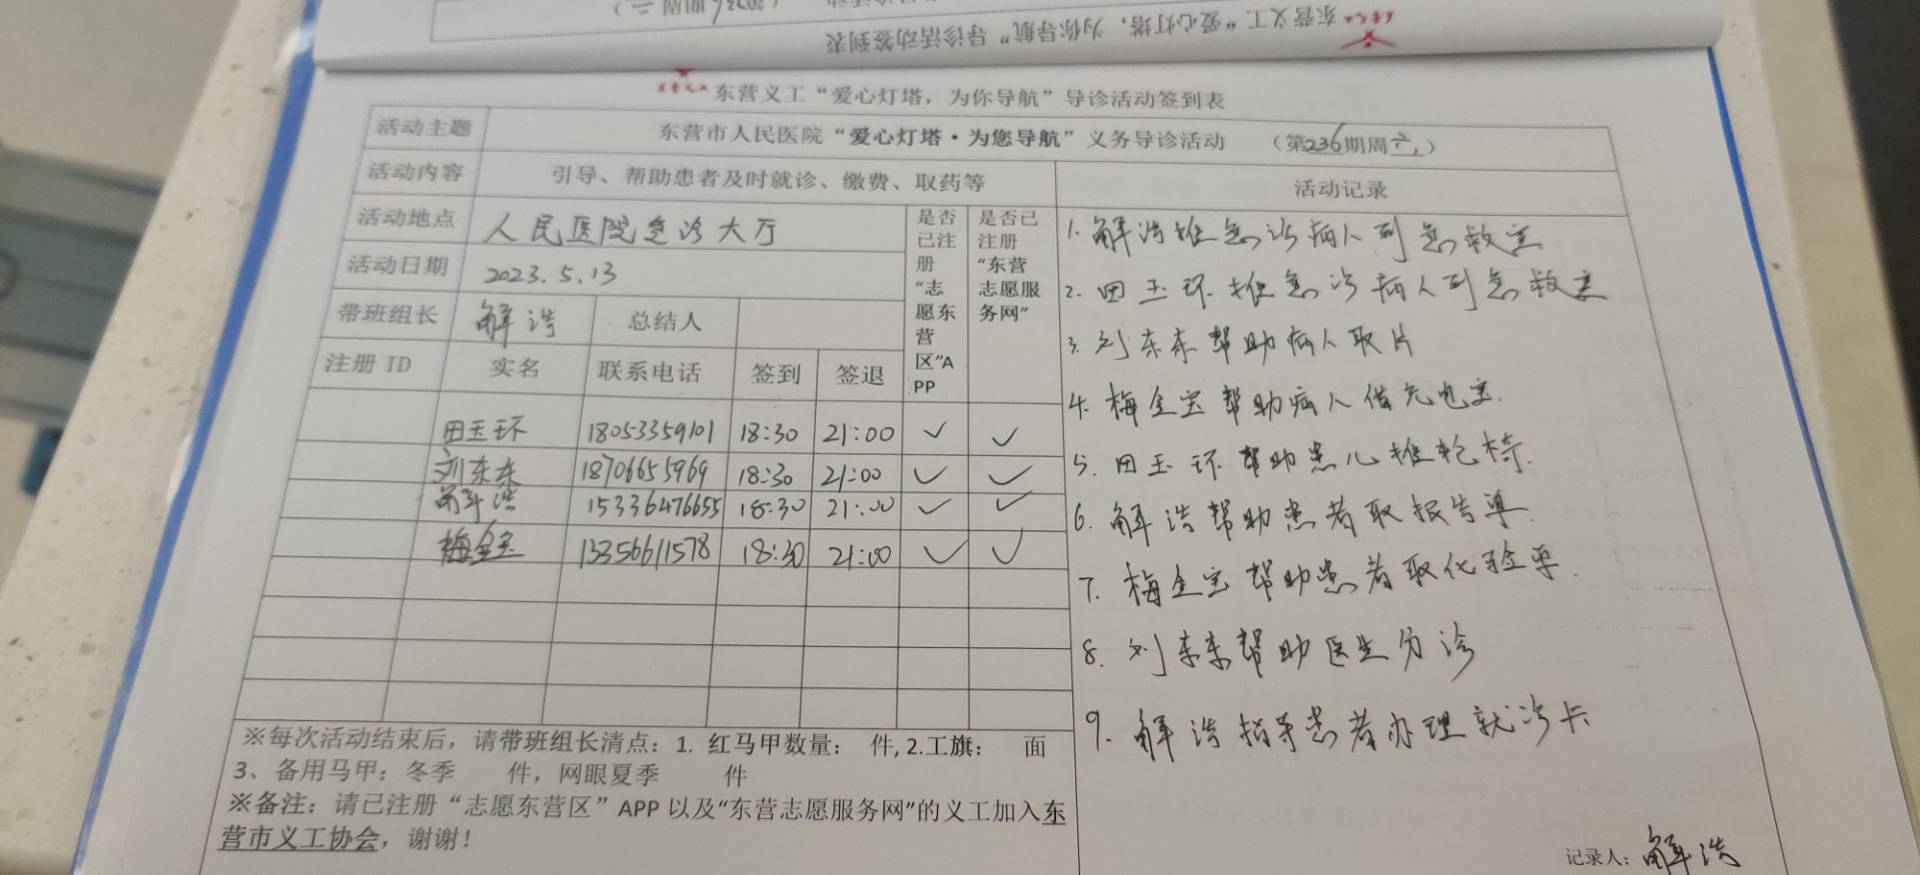 东营义工“爱心灯塔，为你导航”导诊活动签到表
东营义工“爱心灯塔，为你导航”导诊活动签到表
活动主题 东营市人民医院“爱心灯塔·为您导航”义务导诊活动 （第236期周六）
活动内容 引导、帮助患者及时就诊、缴费、取药等 活动记录
活动地点 人民医院急诊大厅
活动日期 2023.5.13
带班组长 解浩 总结人
注册 ID 实名 联系电话 签到 签退 是否已注册“志愿东营区”APP 是否已注册“东营志愿服务网”
田玉环 18053359101 18:30 21:00 ✓ ✓
刘东东 18706655969 18:30 21:00 ✓ ✓
解浩 15336476655 18:30 21:00 ✓ ✓
梅金宝 13356611578 18:30 21:00 ✓ ✓
※每次活动结束后，请带班组长清点：1. 红马甲数量： 件, 2.工旗： 面
3、备用马甲：冬季 件，网眼夏季 件
※备注：请已注册“志愿东营区”APP 以及“东营志愿服务网”的义工加入东
营市义工协会，谢谢！
1. 解浩推急诊病人到急救室
2. 田玉环推急诊病人到急救室
3. 刘东东帮助病人取片
4. 梅金宝帮助病人借充电宝.
5. 田玉环帮助患儿推轮椅.
6. 解浩帮助患者取报告单.
7. 梅金宝帮助患者取化验单.
8. 刘东东帮助医生分诊
9. 解浩指导患者办理就诊卡
记录人：解浩